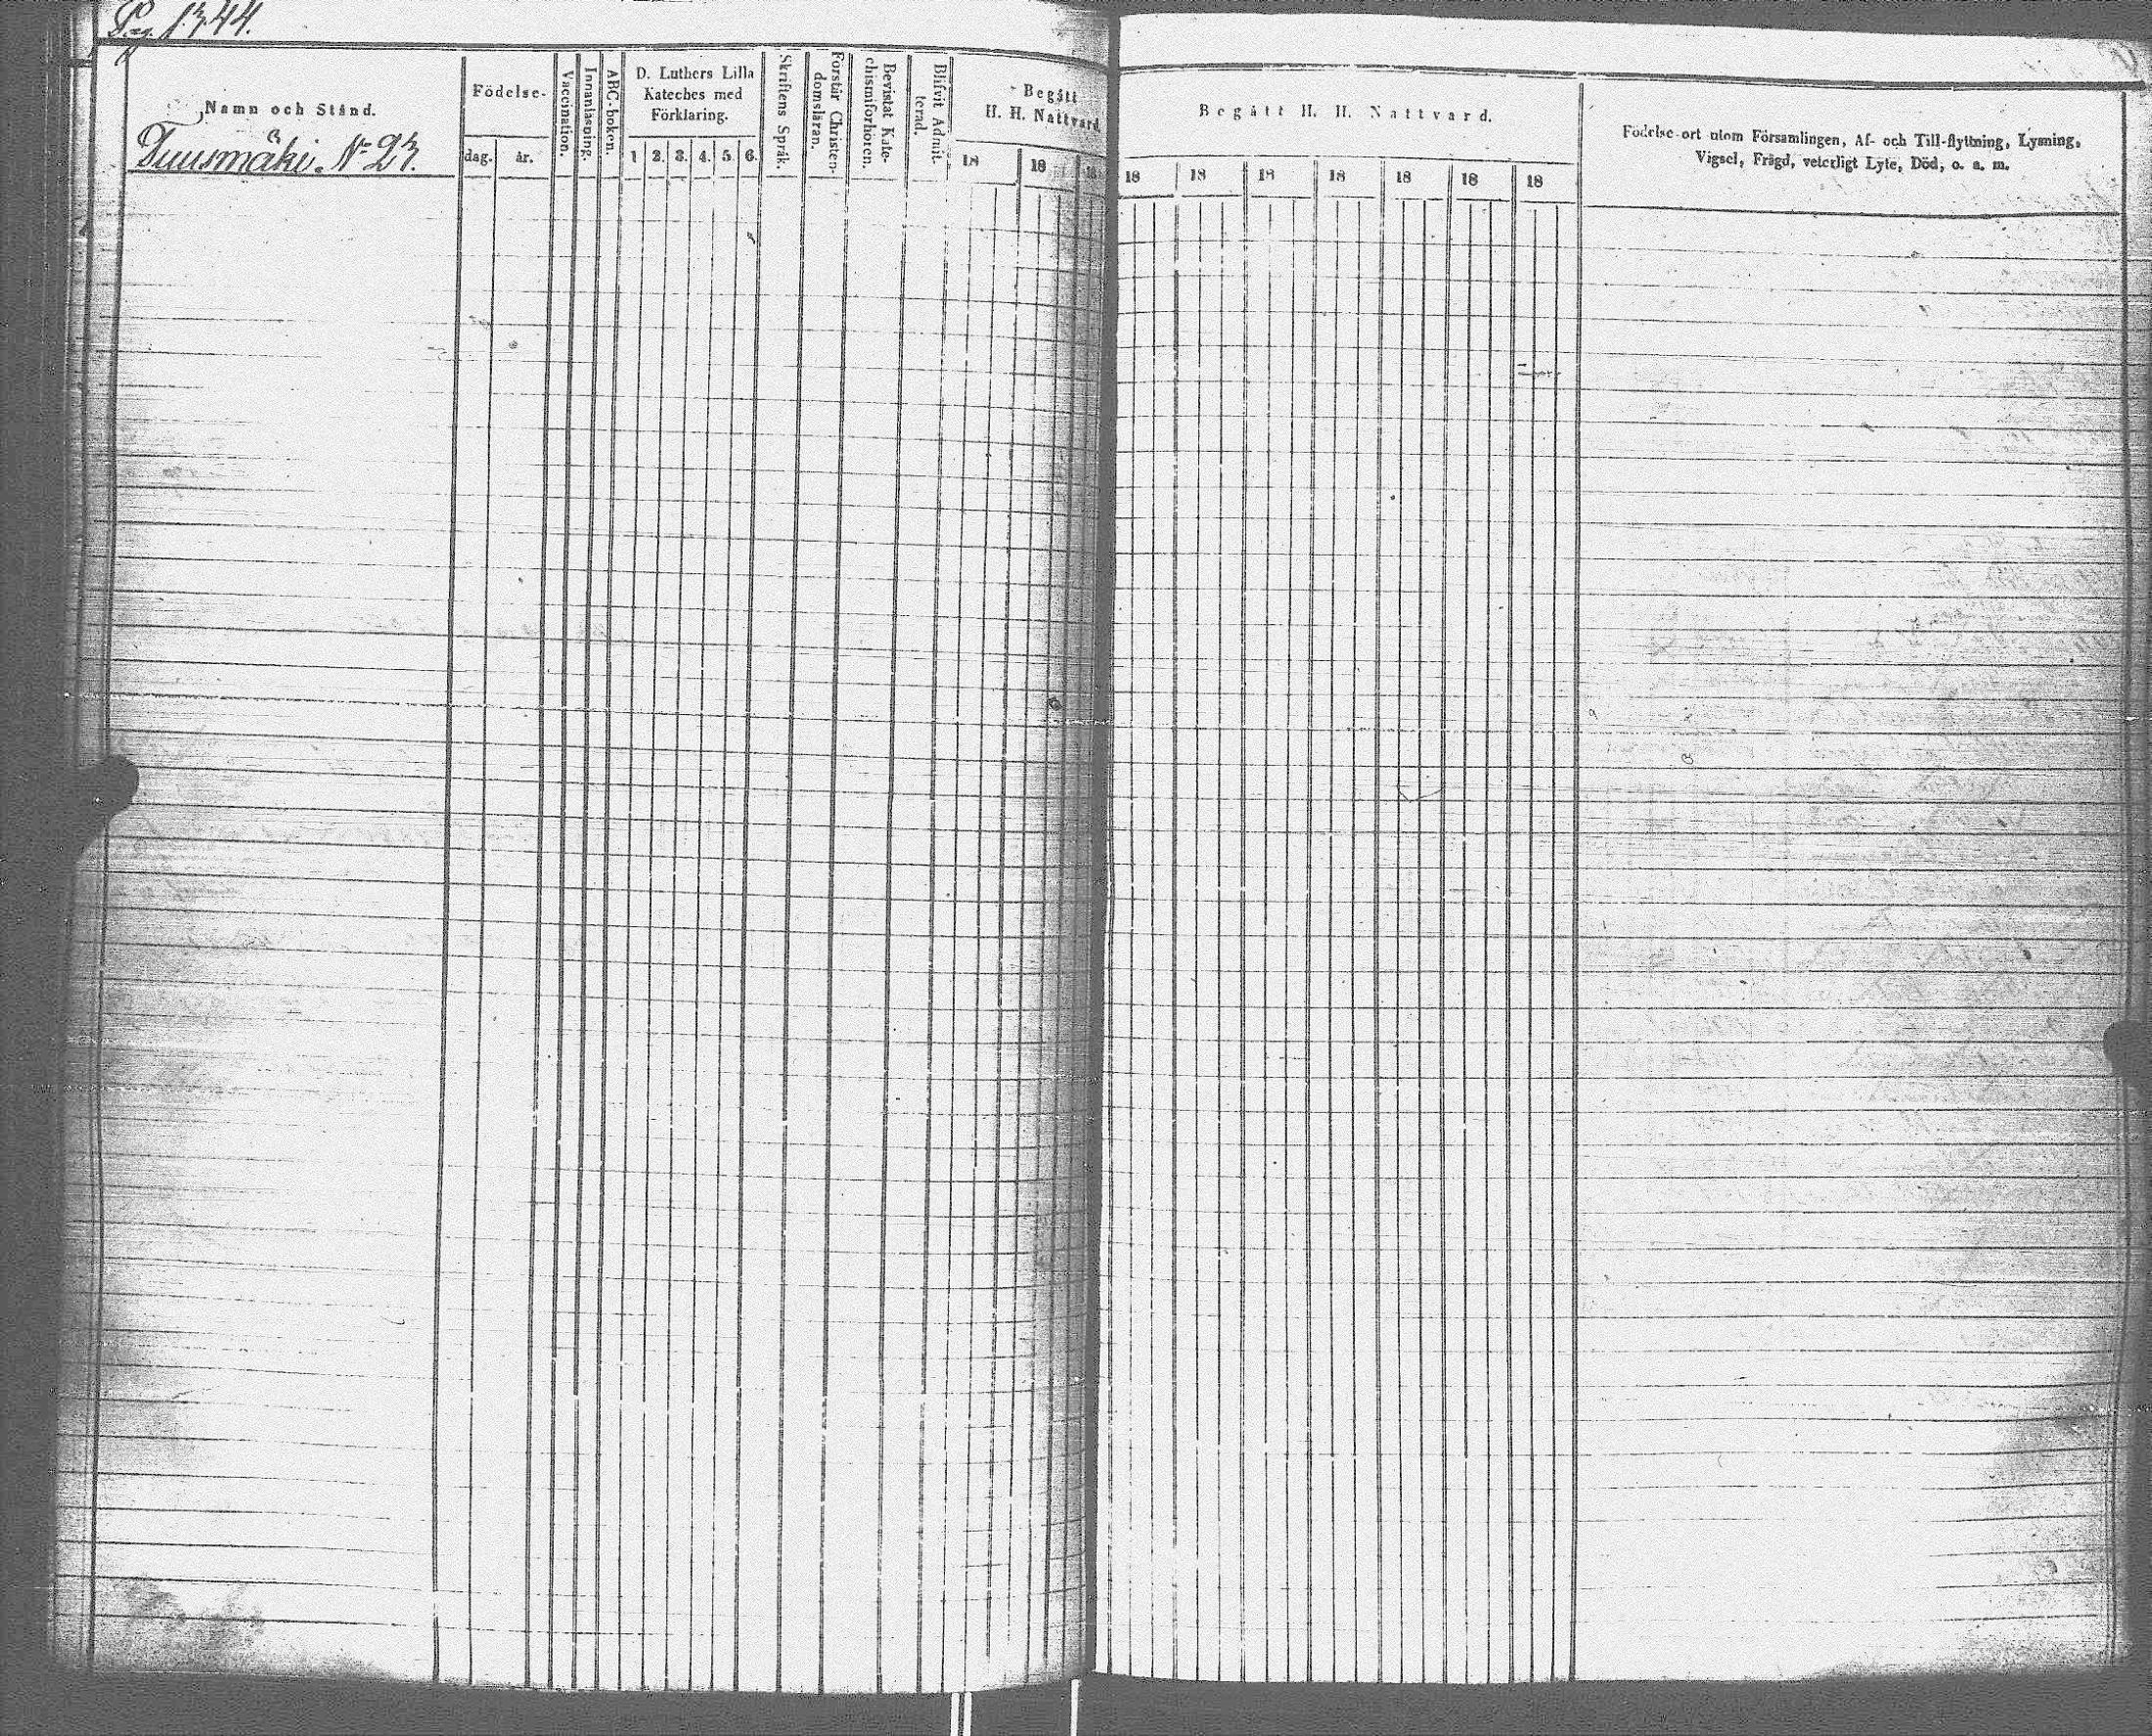 Pag. 1344.
Namn och Stånd.
Tuusmäki. No 23.
Födelse-
dag. år.
Vaccination.
Innanläsning.
ABC-boken.
D. Luthers Lilla
Kateches med
Förklaring.
1 2. 3. 4. 5. 6.
Skriftens Språk.
Förstår Christen-
domsläran.
Bevistat Kate-
chismiförhören.
Blifvit Admit-
terad.
Begått
H. H. Nattvard.
18 18 18
Begått H. H. Nattvard.
18 18 18 18 18 18 18
Födelse-ort utom Församlingen, Af- och Till-flyttning, Lysning,
Vigsel, Frägd, veterligt Lyte, Död, o. a. m.